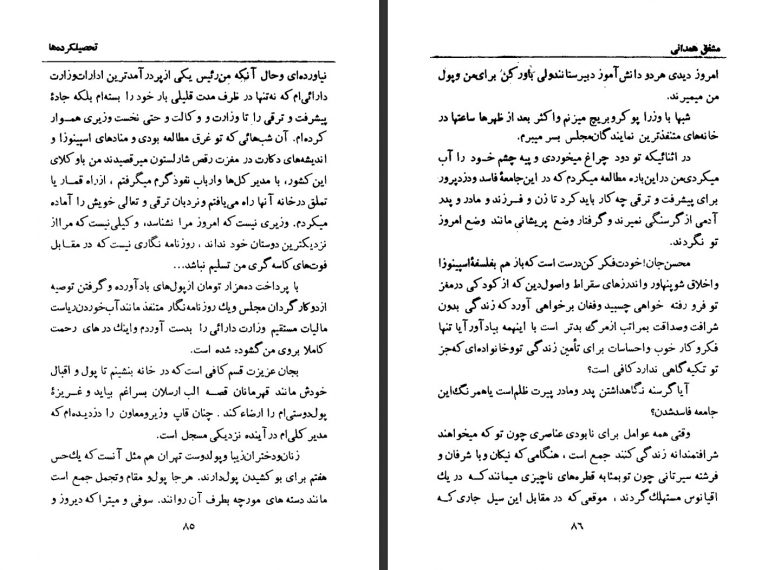 تحصیلکرده‌ها
نیاورده‌ای وحال آنکه من‌رئیس یکی ازپردرآمدترین ادارات‌وزارت
دارائی‌ام که نه‌تنها در ظرف مدت قلیلی بار خود را بسته‌ام بلکه جادهٔ
پیشرفت و ترقی را تا وزارت و وکالت و حتی نخست وزیری همــوار
کرده‌ام. آن شب‌هائی که تو غرق مطالعه بودی و منادهای اسپینوزا و
اندیشه‌های دکارت در مغزت رقص شارلستون میرقصیدند من باوکلای
این‌کشور، با مدیر کل‌ها وارباب نفوذگرم میگرفتم ، ازراه قمـار یا
تملق درخانه آنها راه می‌یافتم ونردبان ترقی و تعالی خویش را آماده
میکردم. وزیری نیست که امروز مرا نشناسد، وکیلی‌نیست که مرااز
نزدیکترین دوستان خود نداند ، روزنامه نگاری نیست‌که در مقـابل
فوت‌های کاسه‌گری من تسلیم نباشد...
با پرداخت ده‌هزار تومان ازپول‌های بادآورده و گرفتن توصیه
ازدوکارگردان مجلس ویك روزنامه‌نگار متنفذ مانندآب‌خوردن‌ریاست
مالیات مستقیم وزارت دارائی را بدست آوردم واینك درهای رحمت
کاملا بروی من‌گشوده شده است.
بجان عزیزت قسم‌کافی است‌که در خانه بنشینم تا پول و اقبال
خودش مانند قهرمانان قصـه الب ارسلان بسراغم بیاید و غـریـزهٔ
پول‌دوستی‌ام را ارضاءکند . چنان قاپ وزیرومعاون را دزدیده‌ام‌که
مدیرکلی‌ام درآینده نزدیکی مسجل است.
زنان‌ودختران‌زیبا وپولدوست تهران هم مثل آنست که یك‌حس
هفتم برای بوکشیدن پول‌دارند. هرجا پول‌و مقام وتجمل جمع است
مانند دسته های مورچه بطرف آن روانند. سوفی و میتراکه دیروز و
۸۵
مشفق همدانی
امروز دیدی هردو دانش‌آموز دبیرستانندولی باورکن برای‌من وپول
من میمیرند.
شبها با وزرا پوکروبریج میزنم واکثر بعد از ظهرها ساعتها در
خانه‌های متنفذترین نمایندگان‌مجلس بسر میبرم.
در اثنائیکه تو دود چراغ میخوردی و پیه چشم خـود را آب
میکردی‌من دراین‌باره مطالعه میکردم که در این‌جامعهٔ فاسد ودزدپرور
برای پیشرفت و ترقی چه کار باید کرد تا زن و فـرزند و مادر و پدر
آدمی ازگرسنگی نمیرند وگرفتار وضع پریشانی مانند وضع امروز
تو نگردند.
محسن‌جان!خودت‌فکرکن‌درست است‌که بازهم بفلسفهٔ‌اسپینوزا
واخلاق شوپنهاور واندرزهای سقراط واصول‌دین‌که ازکودکی درمغز
تو فرو رفته خواهی چسبید وفغان برخواهی آوردکه زندگی بدون
شرافت وصداقت بمراتب ازمرگ بدتر است با اینهمه بیادآورآیا تنها
فکروکار خوب واحساسات برای تأمین زندگی تووخانواده‌ای‌که‌جز
تو تکیه‌گاهی نداردکافی است؟
آیاگرسنه نگاهداشتن پدر ومادر پیرت ظلم‌است یاهمرنگ‌این
جامعه فاسدشدن؟
وقتی همه عوامل برای نابودی عناصری چون تو که میخواهند
شرافتمندانه زندگی‌کنند جمع است ، هنگامی‌که نیکان وبا شرفان و
فرشته سیرتانی چون توبمثابه قطره‌های ناچیزی میمانندکـــه در یك
اقیانوس مستهلك گردند ، موقعی‌که در مقابل این سیل جاری کــه
۸۶